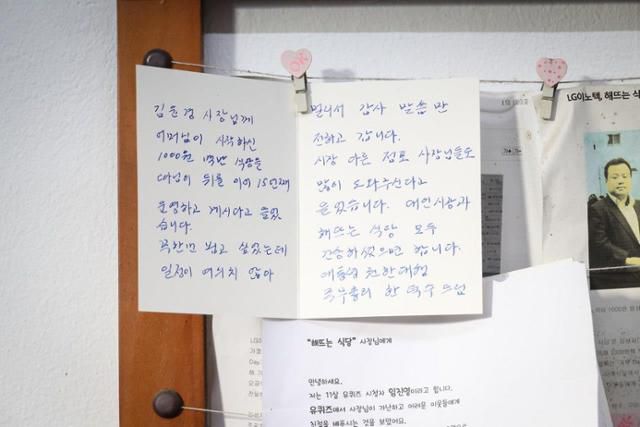 김윤경 사장님께
어머님이 시작하신
1000원 백반 식당을
따님이 뒤를 이어 15년째
운영하고 계시다고 들었
습니다.
꼭 한번 뵙고 싶었는데
일정이 여의치 않아
멀리서 감사 말씀만
전하고 갑니다.
시장 다른 점포 사장님들도
많이 도와주신다고
들었습니다. 대인시장과
해뜨는 식당 모두
건승하셨으면 합니다.
대통령 권한대행
국무총리 한덕수 드림
LG이노텍, 해뜨는 식
"해뜨는 식당" 사장님에게
안녕하세요.
저는 11살 유퀴즈 시청자 임진영이라고 합니다.
유퀴즈에서 사장님이 가난하고 어려운 이웃들에게
친절을 베푸시는 것을 보았어요.